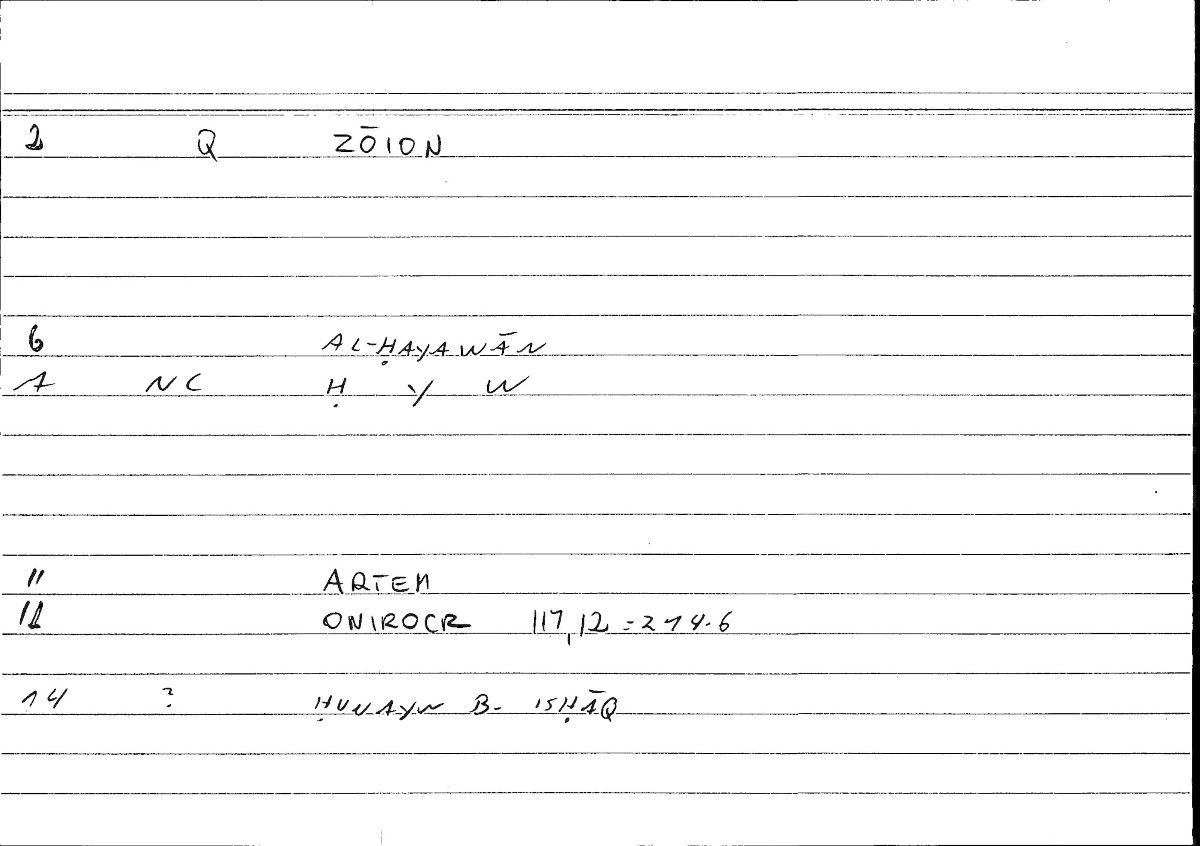 2 Q ZŌION
6 AL-ḤAYAWĀN
1 NC Ḥ Y W
11 ARTEM
12 ONIROCR 117,12 = 214.6
14 ? ḤUNAYN B. ISḤĀQ